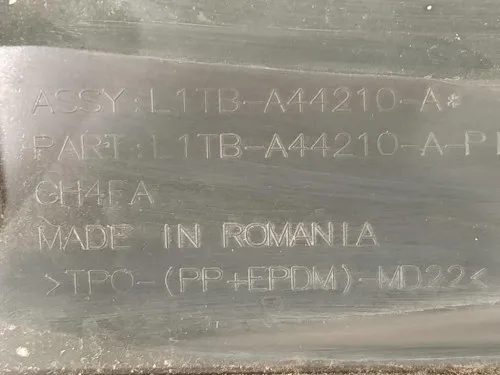 ASSY:L1TB-A44210-A*
PART:L1TB-A44210-A-P1
GH4FA
MADE IN ROMANIA
>TPO-(PP+EPDM)-MD22<